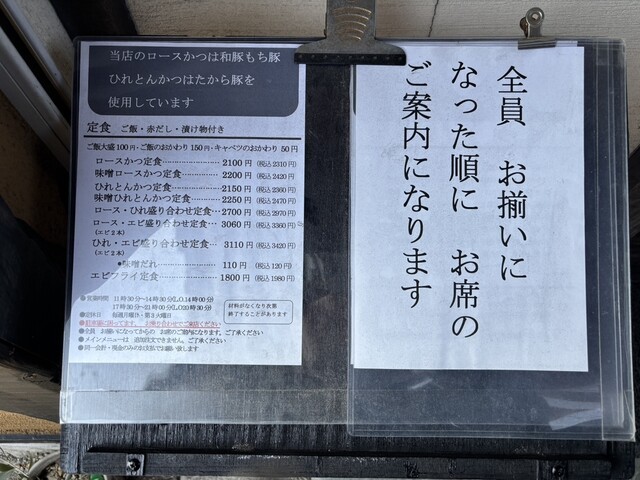 当店のロースかつは和豚もち豚
ひれとんかつはたから豚を
使用しています
定食 ご飯・赤だし・漬け物付き
ご飯大盛100円・ご飯のおかわり150円・キャベツのおかわり50円
ロースかつ定食…………………2100円(税込2310円)
味噌ロースかつ定食……………2200円(税込2420円)
ひれとんかつ定食………………2150円(税込2360円)
味噌ひれとんかつ定食…………2250円(税込2470円)
ロース・ひれ盛り合わせ定食…2700円(税込2970円)
ロース・エビ盛り合わせ定食…3060円(税込3360円)
(エビ2本)
ひれ・エビ盛り合わせ定食… 3110円(税込3420円)
(エビ2本)
●味噌だれ………………………110円(税込120円)
エビフライ定食…………………1800円(税込1980円)
●営業時間 11時30分~14時30分(L.O.14時00分)
17時30分~21時00分(L.O.20時30分)
●定休日 毎週月曜日・第3火曜日
材料がなくなり次第
終了することがあります
●全員 お揃いになってからの お席のご案内になります。ご了承ください
●メインメニューは 追加注文できません。ご了承ください
●同一会計・現金のみのお支払でお願い致します
全員 お揃いに
なった順に お席の
ご案内になります